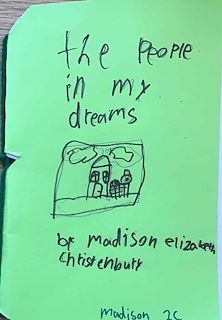 the People
in my
dreams
by madison elizabeth
Christenbury
madison 2C